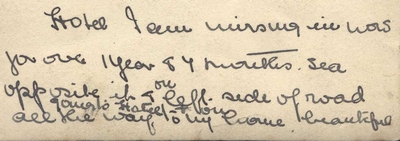 Hotel I am nursing in now
for over 1 year & 7 months. Sea
opposite it & on left side of road
going to Hotel & on
all the way to my home. beautiful